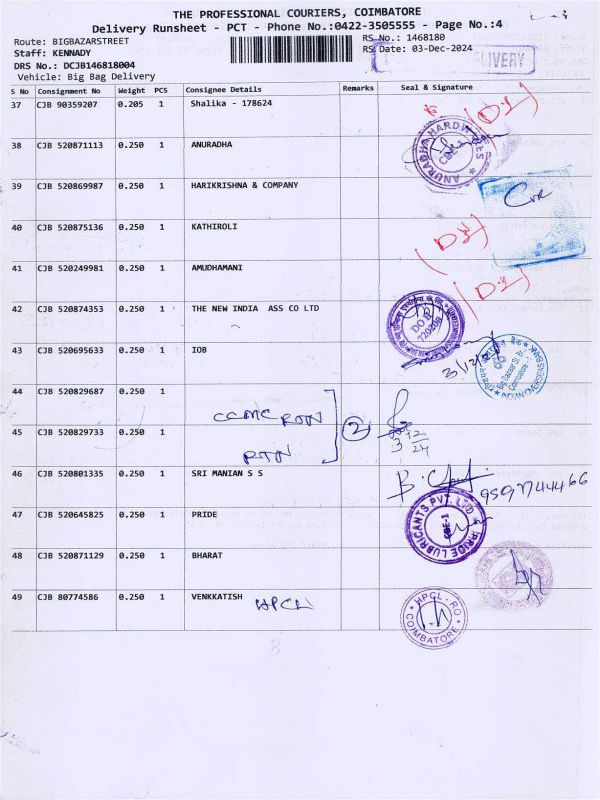 THE PROFESSIONAL COURIERS, COIMBATORE
Delivery Runsheet - PCT - Phone No.:0422-3505555 - Page No.:4
Route: BIGBAZARSTREET RS No.: 1468180
Staff: KENNADY RS Date: 03-Dec-2024
DRS No.: DCJB146818004
Vehicle: Big Bag Delivery
S No Consignment No Weight PCS Consignee Details Remarks Seal & Signature
37 CJB 90359207 0.205 1 Shalika - 178624
38 CJB 520871113 0.250 1 ANURADHA
ANURADHA HARDWARES
39 CJB 520869987 0.250 1 HARIKRISHNA & COMPANY
40 CJB 520875136 0.250 1 KATHIROLI
41 CJB 520249981 0.250 1 AMUDHAMANI
42 CJB 520874353 0.250 1 THE NEW INDIA ASS CO LTD
43 CJB 520695633 0.250 1 IOB
INDIAN OVERSEAS BANK
44 CJB 520829687 0.250 1
45 CJB 520829733 0.250 1
2
3 12 24
46 CJB 520801335 0.250 1 SRI MANIAN S S
9597744466
47 CJB 520645825 1 0.250 PRIDE
PRIDE LUBRICANTS PVT. LTD
CBE-1
48 CJB 520871129 0.250 1 BHARAT
49 CJB 80774586 0.250 1 VENKKATISH HPCL
HPCL - RO
COIMBATORE